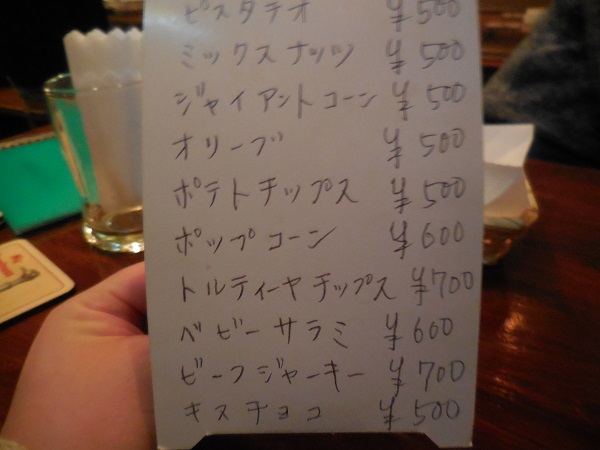 ピスタチオ ¥500
ミックスナッツ ¥500
ジャイアントコーン ¥500
オリーブ ¥500
ポテトチップス ¥500
ポップコーン ¥600
トルティーヤチップス ¥700
ベビーサラミ ¥600
ビーフジャーキー ¥700
キスチョコ ¥500